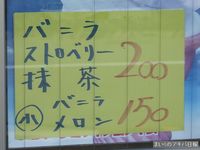 バニラ
ストロベリー 200
抹茶
小 バニラ 150
メロン
まいじのアキバ日報